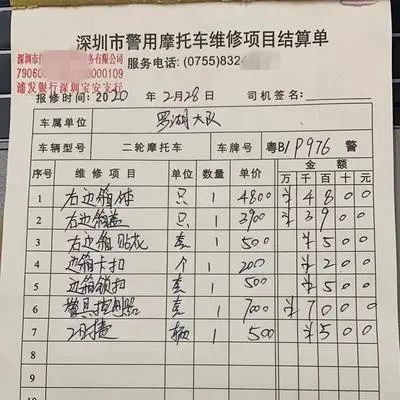 深圳市警用摩托车维修项目结算单
深圳市 务有限公司
79060 0000109
浦发银行深圳宝安支行
服务电话: (0755)832
报修时间: 2020 年 2月28日 司机签名:
车属单位 罗湖大队
车辆型号 二轮摩托车 车牌号 粤B/P976 警
序号 维修项目 单位 数量 单价 金额
万 千 百 十 元
1 右边箱体 只 1 4800 ¥ 4 8 0 0
2 右边箱盖 只 1 3900 ¥ 3 9 0 0
3 右边箱贴花 套 1 500 ¥ 5 0 0
4 边箱卡扣 个 1 200 ¥ 2 0 0
5 边箱锁扣 套 1 500 ¥ 5 0 0
6 警具控制器 套 1 7000 ¥ 7 0 0 0
7 工时费 辆 500 ¥ 5 0 0
8
9